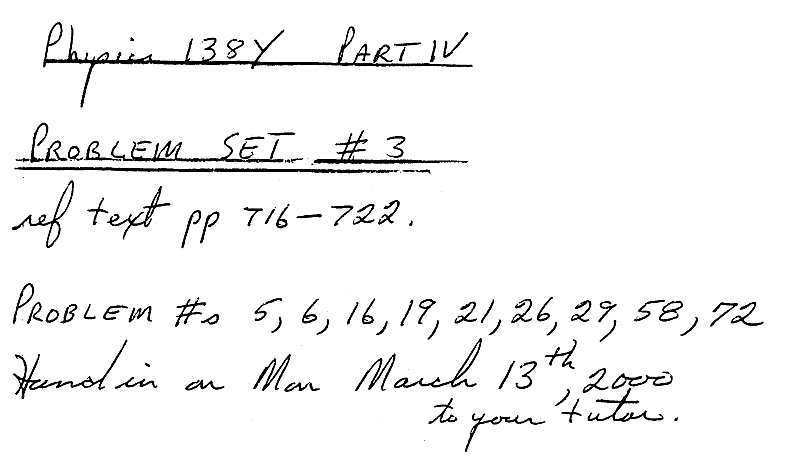 Physics 138Y PART IV
PROBLEM SET #3
ref text pp 716-722.
PROBLEM #s 5, 6, 16, 19, 21, 26, 29, 58, 72
Hand in on Mon March 13th, 2000
to your tutor.